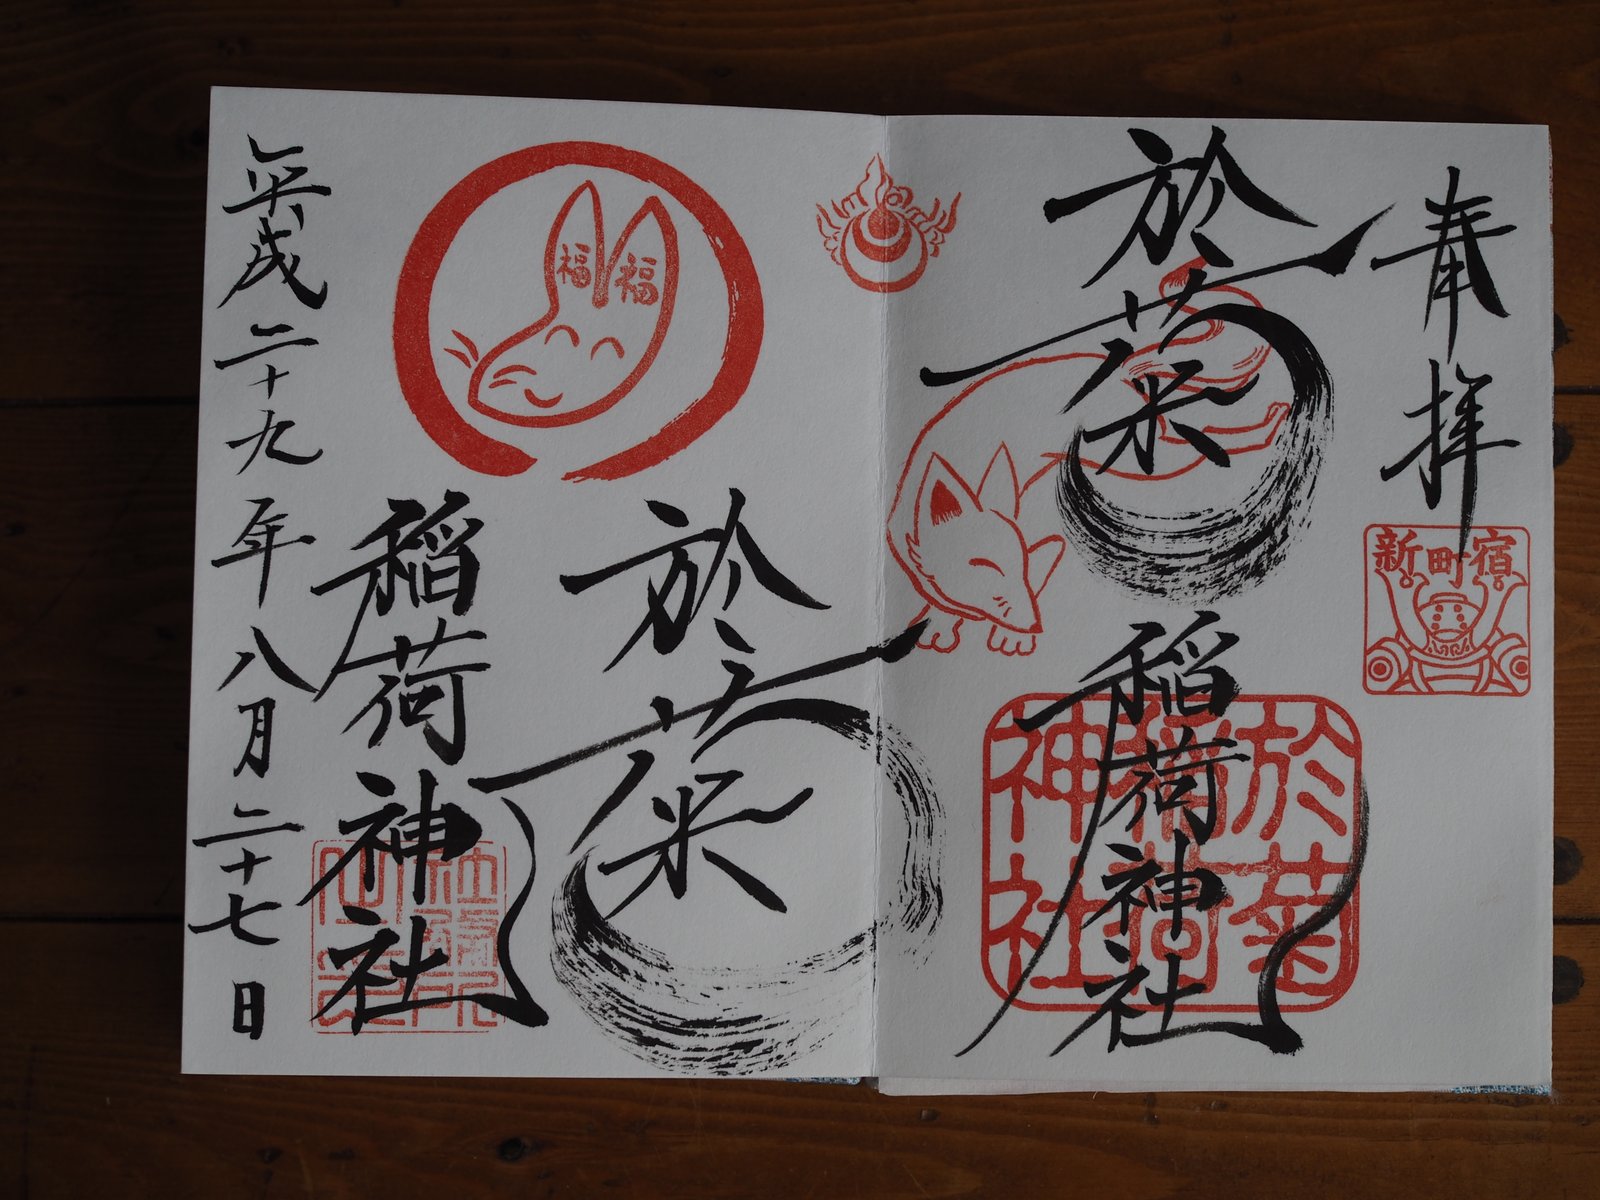 奉拝
新町宿
於菊
稲荷神社
於菊
稲荷
神社
福福
於菊
稲荷神社
平成二十九年八月二十七日